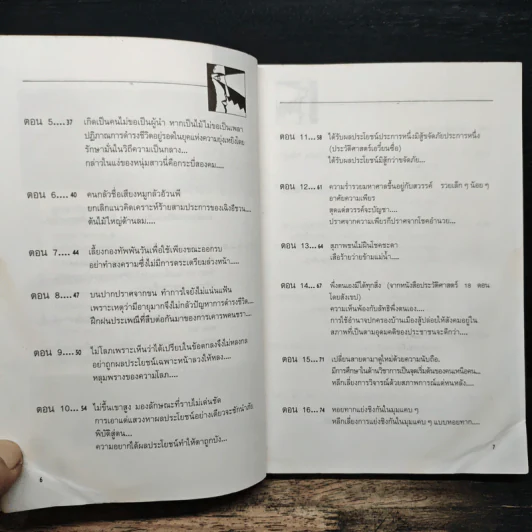 ตอน 5....37 เกิดเป็นคนไม่ขอเป็นผู้นำ หากเป็นไม้ไม่ขอเป็นเพลา
ปฏิภาณการดำรงชีวิตอยู่รอดในยุคแห่งความยุ่งเหยิงโดย
รักษามั่นในวิถีความเป็นกลาง...
กล่าวในแง่ของหนุ่มสาวนี่คือกระบี่สองคม....
ตอน 6.... 40 คนกลัวชื่อเสียงหมูกลัวอ้วนพี
ยกเลิกแนวคิดเคราะห์ร้ายสามประการของเฉิงอีชวน...
ต้นไม้ใหญ่ต้านลม....
ตอน 7.... 44 เลี้ยงกองทัพพันวันเพื่อใช้เพียงขณะออกรบ
อย่าทำสงครามซึ่งไม่มีการตระเตรียมล่วงหน้า....
ตอน 8....47 บนปากปราศจากขน ทำการใจยังไม่แน่นแฟ้น
เพราะเหตุว่ามีอายุมากจึงไม่กลัวปัญหาการดำรงชีวิต...
ฝึกฝนประเพณีที่สืบต่อกันมาของการเคารพคนชรา....
ตอน 9.... 50 ไม่โลภเพราะเห็นว่าได้เปรียบในข้อตกลงจึงไม่หลงกล
อย่าถูกผลประโยชน์เฉพาะหน้าลวงให้หลง....
หลุมพรางของความโลภ....
ตอน 10....54 ไม่ขึ้นเขาสูง มองลักษณะที่ราบไม่เด่นชัด
การเอาแต่แสวงหาผลประโยชน์อย่างเดียวจะชักนำภัย
พิบัติสู่ตน....
ความอยากได้ผลประโยชน์ทำให้ตาถูกบัง...
6
ตอน 11....58 ได้รับผลประโยชน์ประการหนึ่งมิสู้ขจัดภัยประการหนึ่ง
(ประวัติศาสตร์เอวี๋ยนซื่อ)
ได้รับผลประโยชน์มิสู้กว่าขจัดภัย...
ตอน 12....61 ความร่ำรวยมหาศาลขึ้นอยู่กับสวรรค์ รวยเล็ก ๆ น้อย ๆ
อาศัยความเพียร
สุดแต่สวรรค์จะบัญชา....
ปราศจากความเพียรก็ปราศจากโชคอำนวย...
ตอน 13....64 สุภาพชนไม่ฝืนโชคชะตา
เสือร้ายว่ายข้ามแม่น้ำ....
ตอน 14....67 พึ่งตนเองมิได้ทุกสิ่ง (จากหนังสือประวัติศาสตร์ 18 ตอน
โดยสังเขป)
ความเห็นพ้องกับลัทธิพึ่งตนเอง....
การใช้อำนาจปกครองบ้านเมืองสู้ปล่อยให้สังคมอยู่ใน
สภาพที่เป็นตามอุดมคติของประชาชนจะดีกว่า....
ตอน 15....71 เปลี่ยนสายตามาดูใหม่ด้วยความนับถือ.
มีการศึกษาในด้านวิชาการเป็นจุดเริ่มต้นของคนเหนือคน...
หลีกเลี่ยงการวิจารณ์ด้วยสภาพการณ์แต่หนหลัง....
ตอน 16....74 หอยทากแย่งชิงกันในมุมแคบ ๆ
หลีกเลี่ยงการแย่งชิงกันในมุมแคบ ๆ แบบหอยทาก....
7